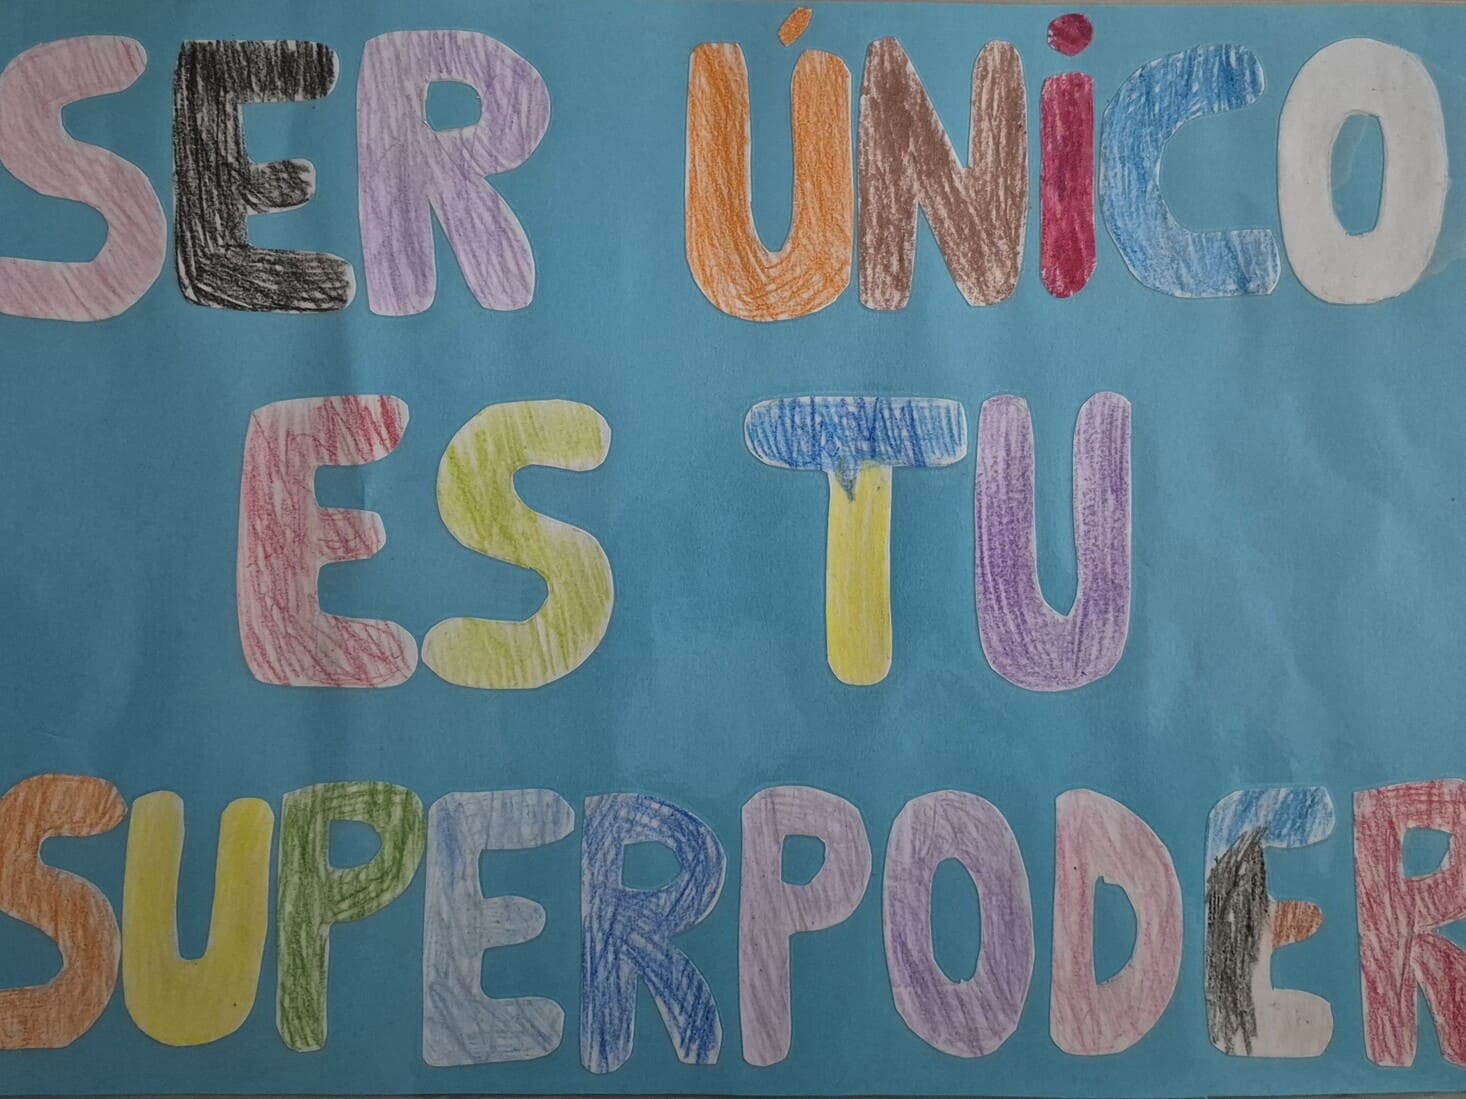 SER ÚNiCO
ES TU
SUPERPODER